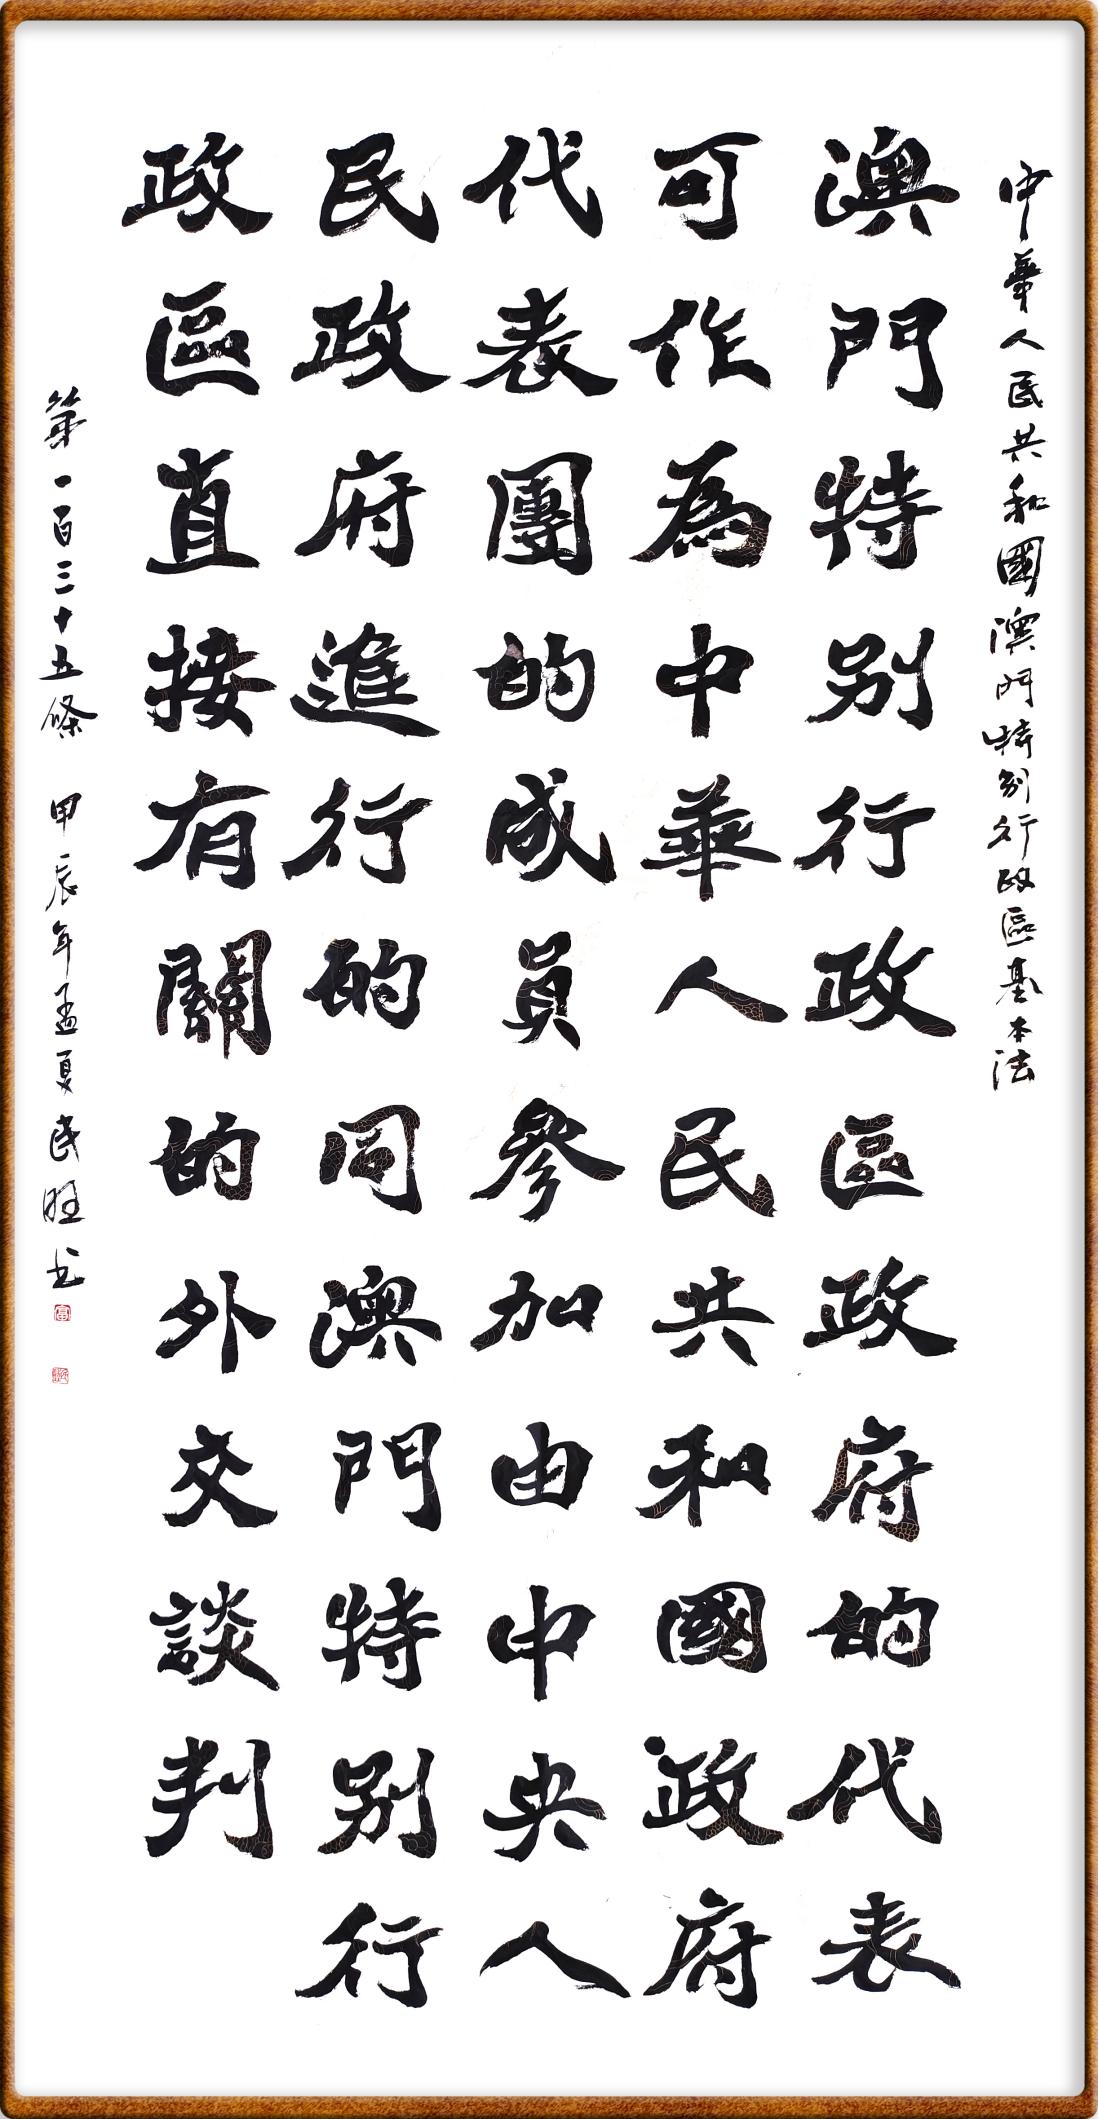 中華人民共和國澳門特别行政區基本法
澳門特别行政區政府的代表
可作為中華人民共和國政府
代表團的成員參加由中央人
民政府進行的同澳門特别行
政區直接有關的外交談判
第一百三十五條 甲辰年孟夏民旺书